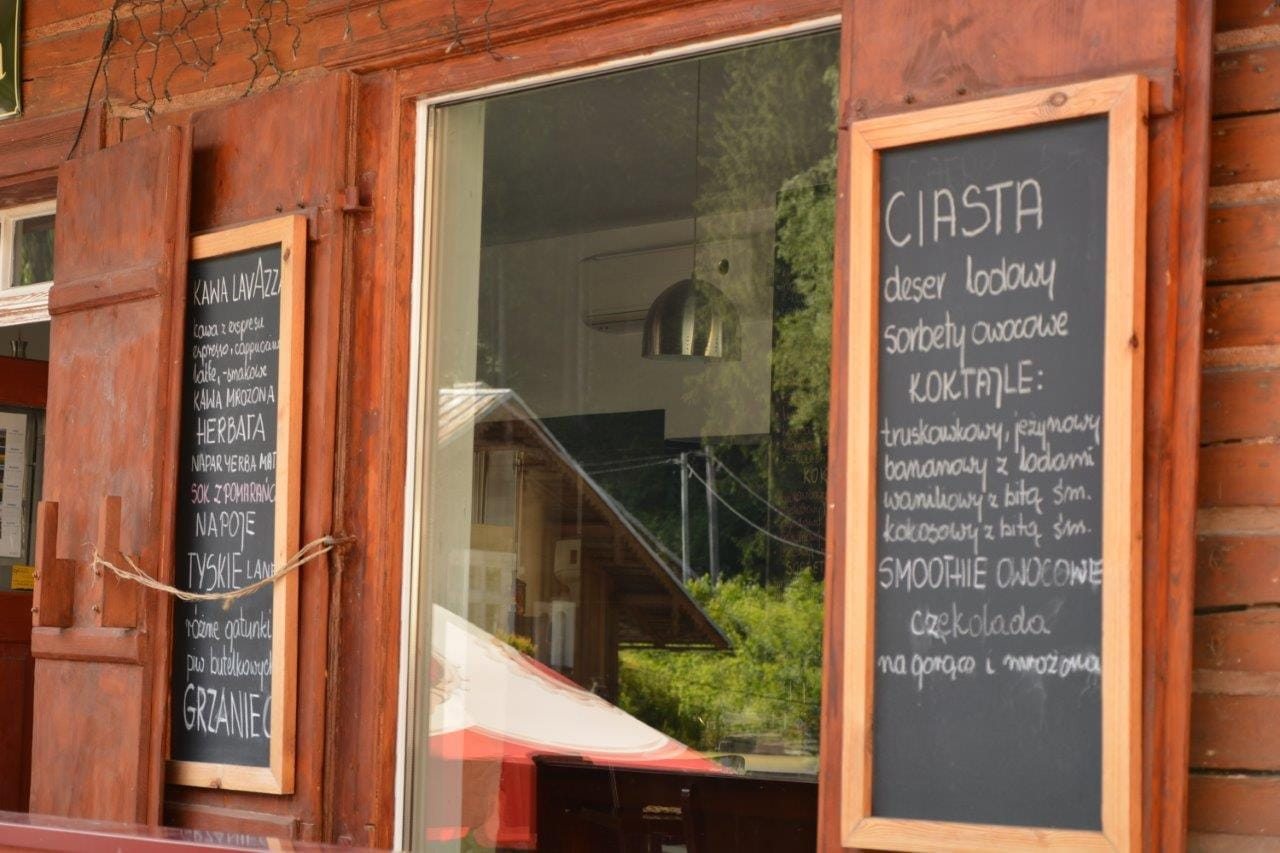 KAWA LAVAZZ
kawa z expresu
espresso, cappuccin
latte, -smakowe
KAWA MROŻONA
HERBATA
NAPAR YERBA MAT
SOK Z POMARAŃC
NAPOJE
TYSKIE LANE
różne gatunki
piw butelkowych
GRZANIEC
CIASTA
deser lodowy
sorbety owocowe
KOKTAJLE:
truskawkowy, jeżynowy
bananowy z lodami
waniliowy z bitą śm.
kokosowy z bitą śm.
SMOOTHIE OWOCOWE
czekolada
na gorąco i mrożona